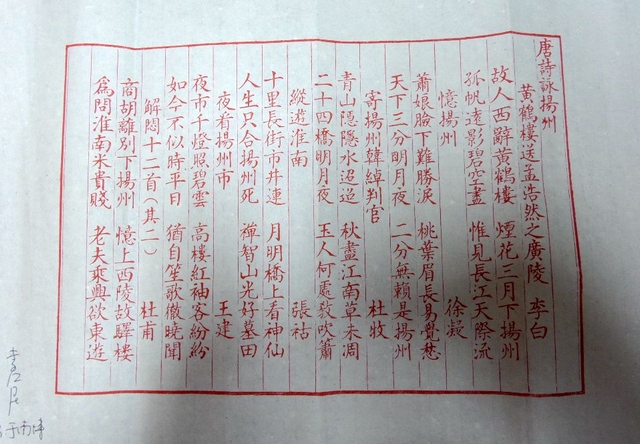 唐詩詠揚州
黃鶴樓送孟浩然之廣陵 李白
故人西辭黃鶴樓 煙花三月下揚州
孤帆遠影碧空盡 惟見長江天際流
憶揚州 徐凝
蕭娘臉下難勝淚 桃葉眉長易覺愁
天下三分明月夜 二分無賴是揚州
寄揚州韓綽判官 杜牧
青山隱隱水迢迢 秋盡江南草未凋
二十四橋明月夜 玉人何處教吹簫
縱遊淮南 張祜
十里長街市井連 月明橋上看神仙
人生只合揚州死 禪智山光好墓田
夜看揚州市 王建
夜市千燈照碧雲 高樓紅袖客紛紛
如今不似時平日 猶自笙歌徹曉聞
解悶十二首（其二） 杜甫
商胡離別下揚州 憶上西陵故驛樓
爲問淮南米貴賤 老夫乘興欲東遊